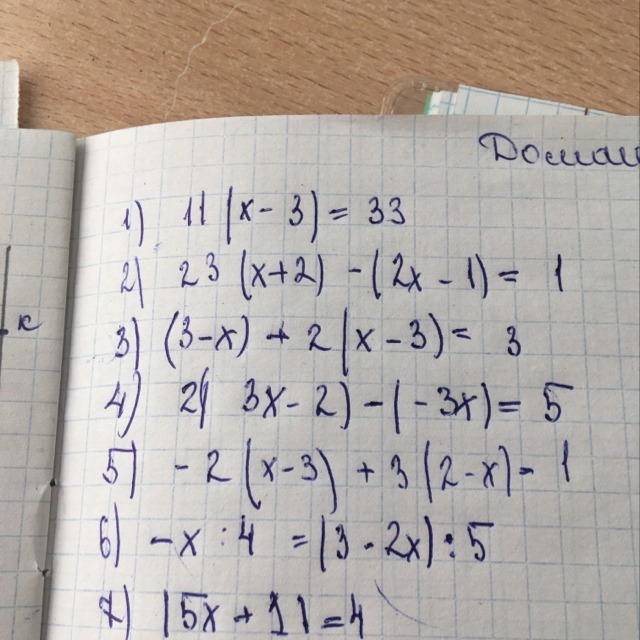 Домаш
1) 11(x-3)=33
2) 23(x+2)-(2x-1)=1
3) (3-x)+2(x-3)=3
4) 2(3x-2)-(-3x)=5
5) -2(x-3)+3(2-x)=1
6) -x:4=(3-2x):5
7) |5x+1|=4
к